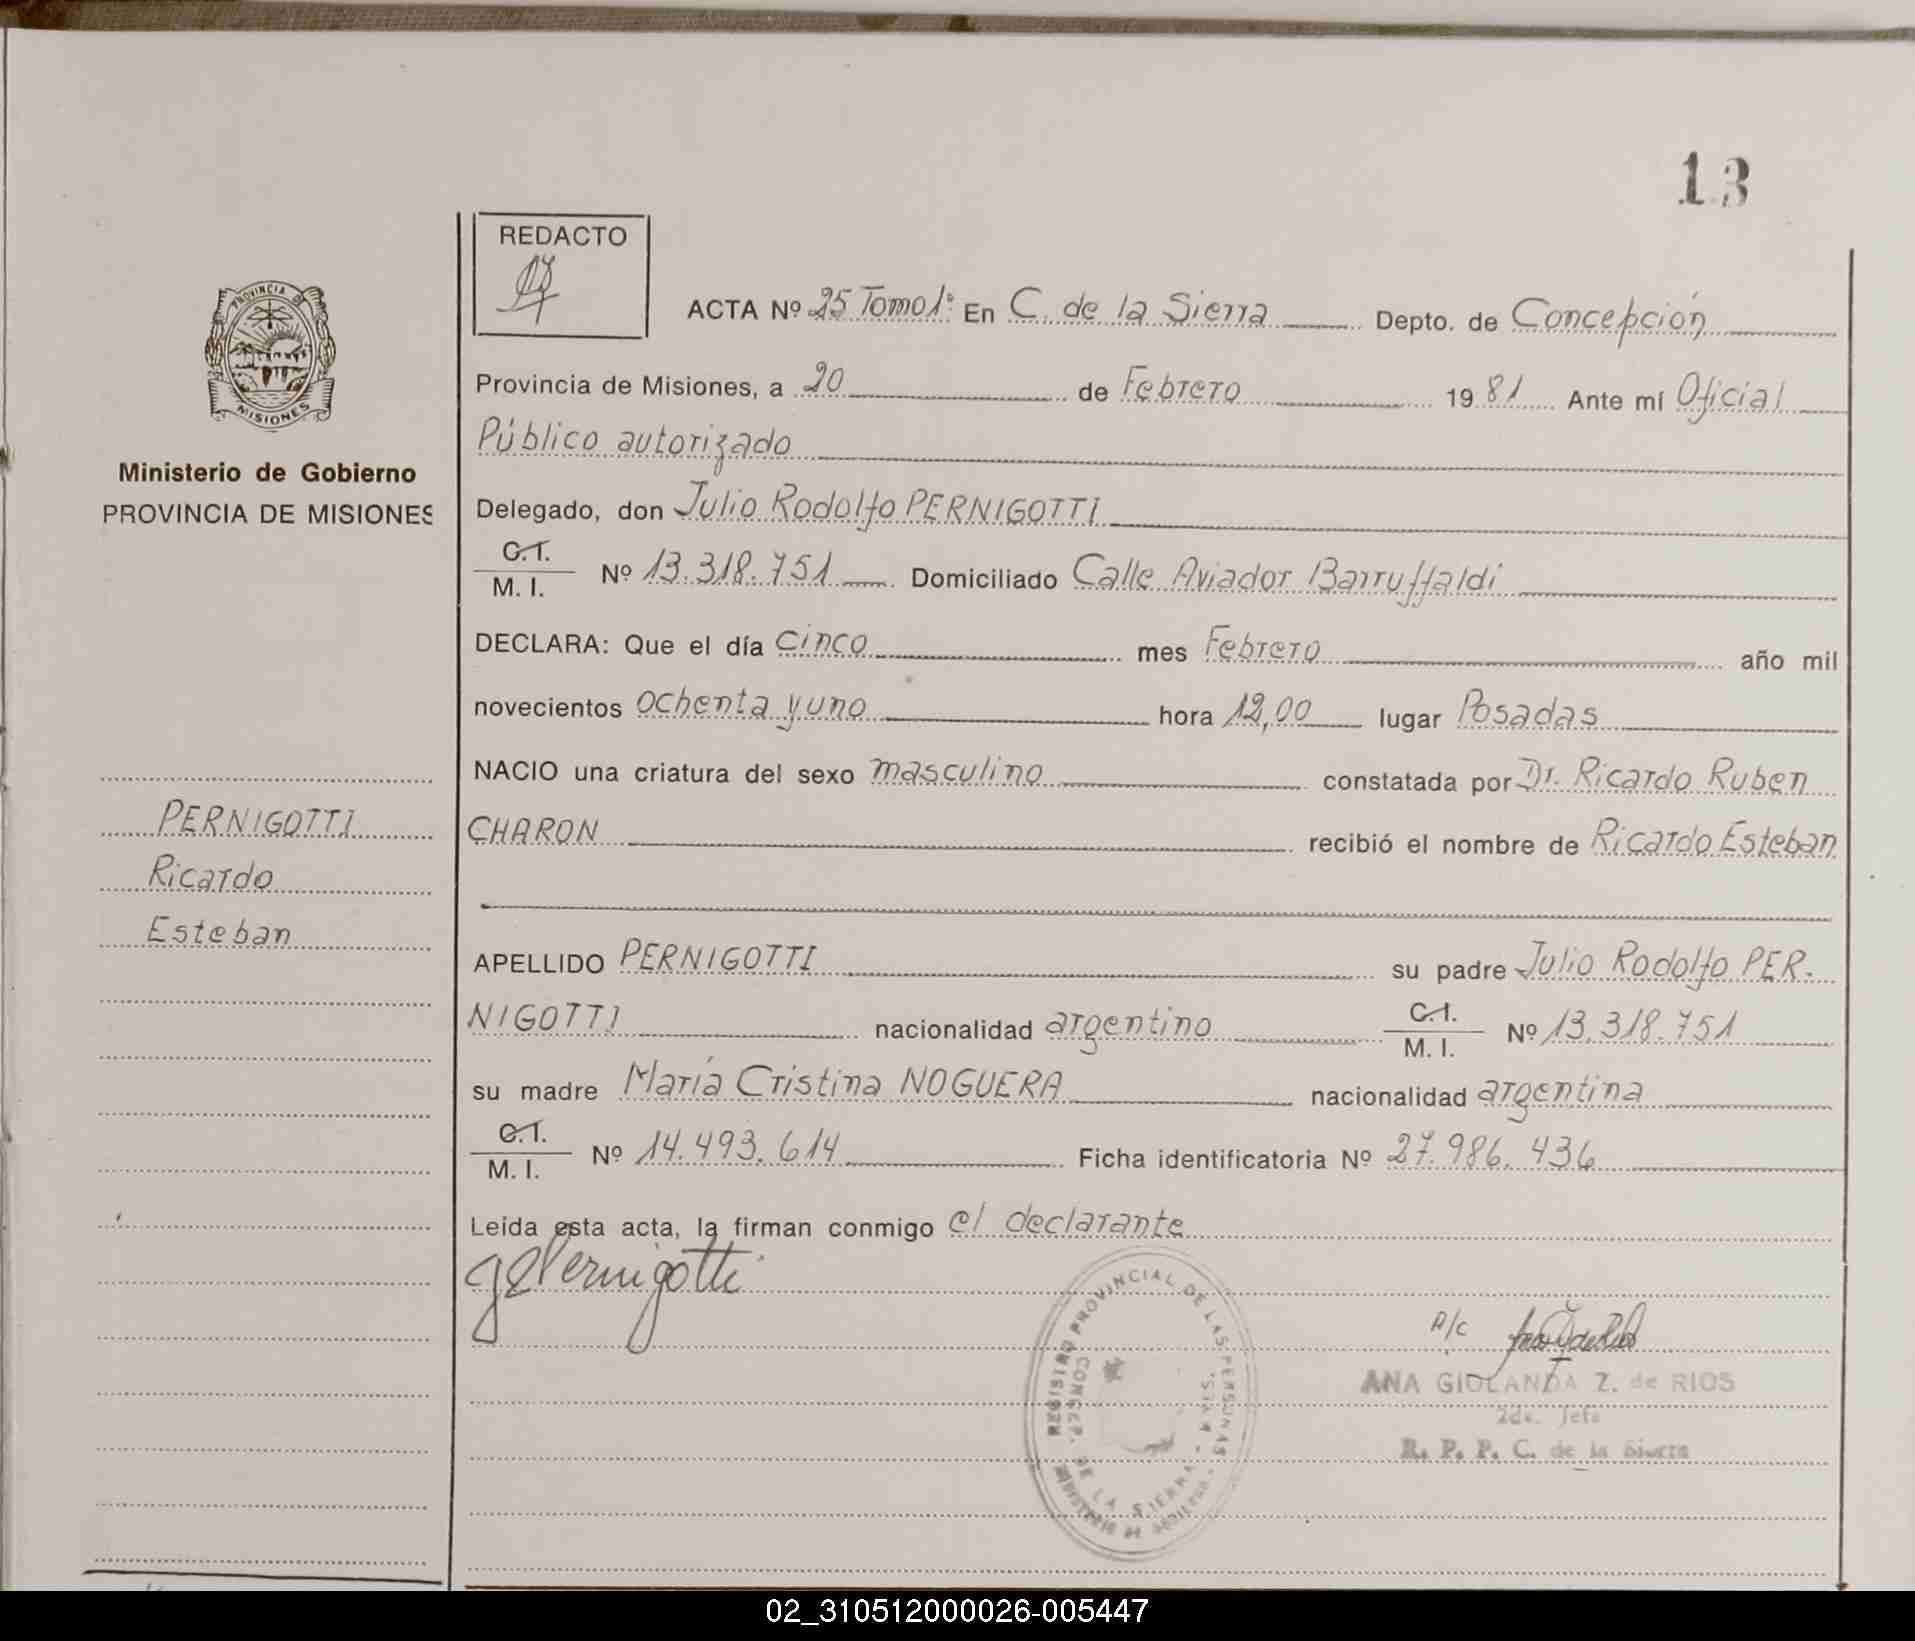 13
REDACTO
PROVINCIA DE
MISIONES
Ministerio de Gobierno
PROVINCIA DE MISIONES
PERNIGOTTI
Ricardo
Esteban
ACTA Nº 25 Tomo 1º En C. de la Sierra Depto. de Concepción
Provincia de Misiones, a 20 de Febrero 1981 Ante mí Oficial
Público autorizado
Delegado, don Julio Rodolfo PERNIGOTTI
C.I.
M. I. Nº 13.318.751 Domiciliado Calle Aviador Barruffaldi
DECLARA: Que el día cinco mes Febrero año mil
novecientos ochenta y uno hora 12,00 lugar Posadas
NACIO una criatura del sexo masculino constatada por Dr. Ricardo Ruben
CHARON recibió el nombre de Ricardo Esteban
APELLIDO PERNIGOTTI su padre Julio Rodolfo PER-
NIGOTTI nacionalidad argentino C.I. M. I. Nº 13.318.751
su madre María Cristina NOGUERA nacionalidad argentina
C.I.
M. I. Nº 14.493.614 Ficha identificatoria Nº 27.986.436
Leída esta acta, la firman conmigo el declarante
Pernigotti
REGISTRO PROVINCIAL DE LAS PERSONAS
CONCEP. DE LA SIERRA
A/C
ANA GIOLANDA Z. de RIOS
2da. Jefe
R. P. P. C. de la Sierra
02_310512000026-005447